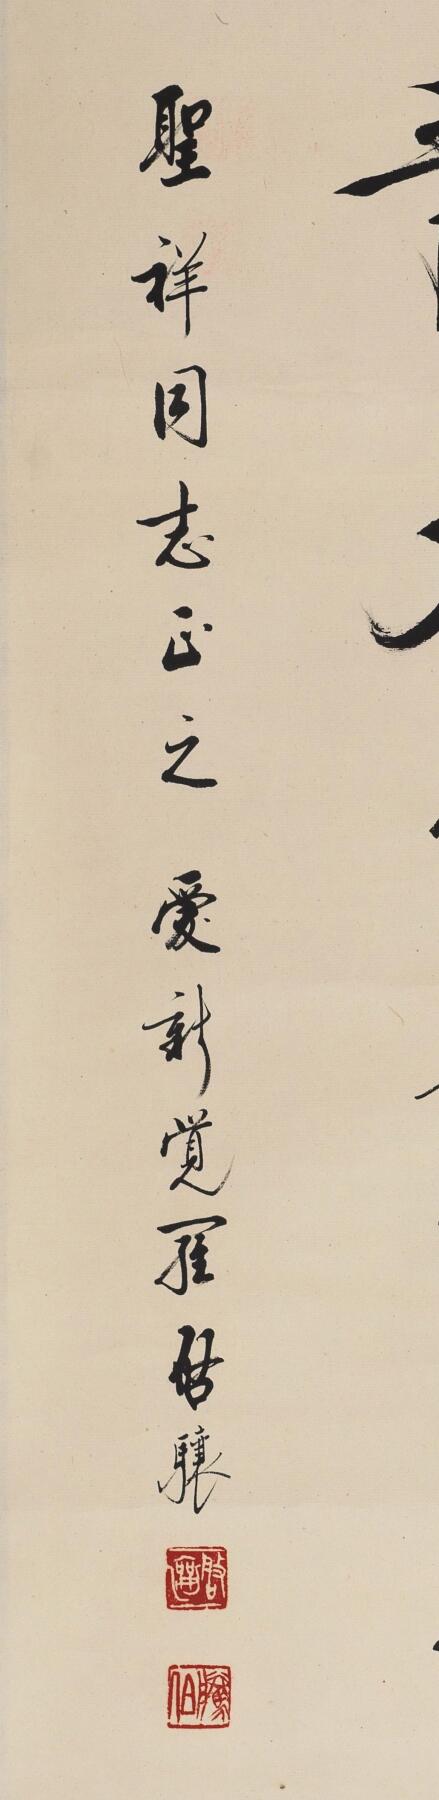 聖祥同志正之 愛新覺羅啓驤